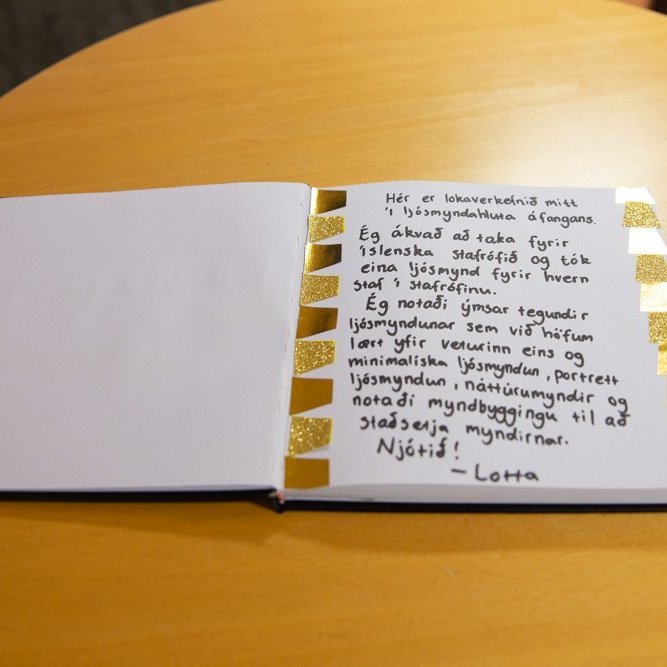 Hér er lokaverkefnið mitt
í ljósmyndahluta áfangans.
Ég ákvað að taka fyrir
íslenska stafrófið og tók
eina ljósmynd fyrir hvern
staf í stafrófinu.
Ég notaði ýmsar tegundir
ljósmyndunar sem við höfum
lært yfir veturinn eins og
minimaliska ljósmyndun, portrett
ljósmyndun, náttúrumyndir og
notaði myndbyggingu til að
staðsetja myndirnar.
Njótið!
- Lotta